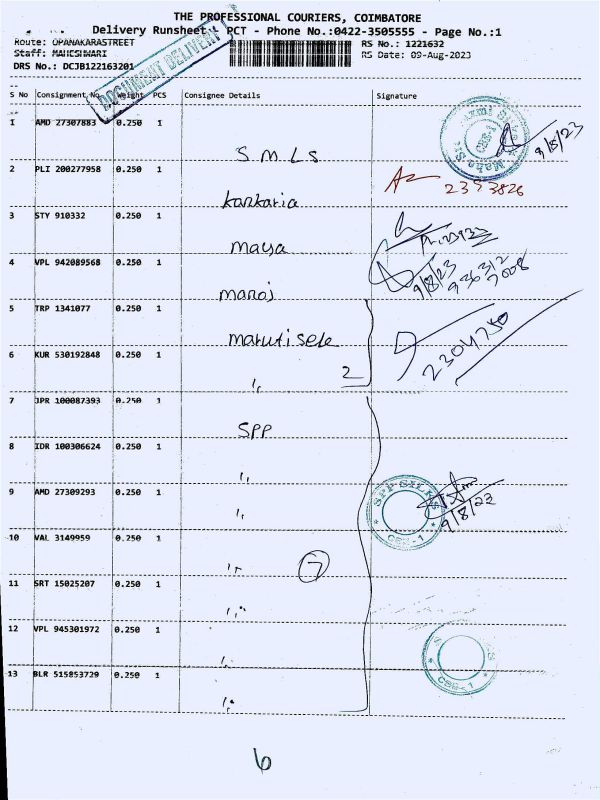 THE PROFESSIONAL COURIERS, COIMBATORE
Delivery Runsheet - PCT - Phone No.:0422-3505555 - Page No.:1
Route: OPANAKARASTREET
RS No.: 1221632
Staff: MAHESHWARI
RS Date: 09-Aug-2023
DRS No.: DCJB122163201
DOCUMENT DELIVERY
S No Consignment No Weight PCS Consignee Details Signature
1 AMD 27307883 0.250 1 S M L S 9/8/23
2 PLI 200277958 0.250 1 kankaria 2353826
3 STY 910332 0.250 1 maya
4 VPL 942089568 0.250 1 manoj 9/8/23
5 TRP 1341077 0.250 1 maruti sele 2304750
6 KUR 530192848 0.250 1 ,, 2
7 JPR 100087393 0.250 1 SPP
8 IDR 100306624 0.250 1 ,,
9 AMD 27309293 0.250 1 ,, SPP SILKS CBE-1 9/8/23
10 VAL 3149959 0.250 1 ,, 7
11 SRT 15025207 0.250 1 ,,
12 VPL 945301972 0.250 1 ,, CBE-1
13 BLR 515853729 0.250 1 ,,
6